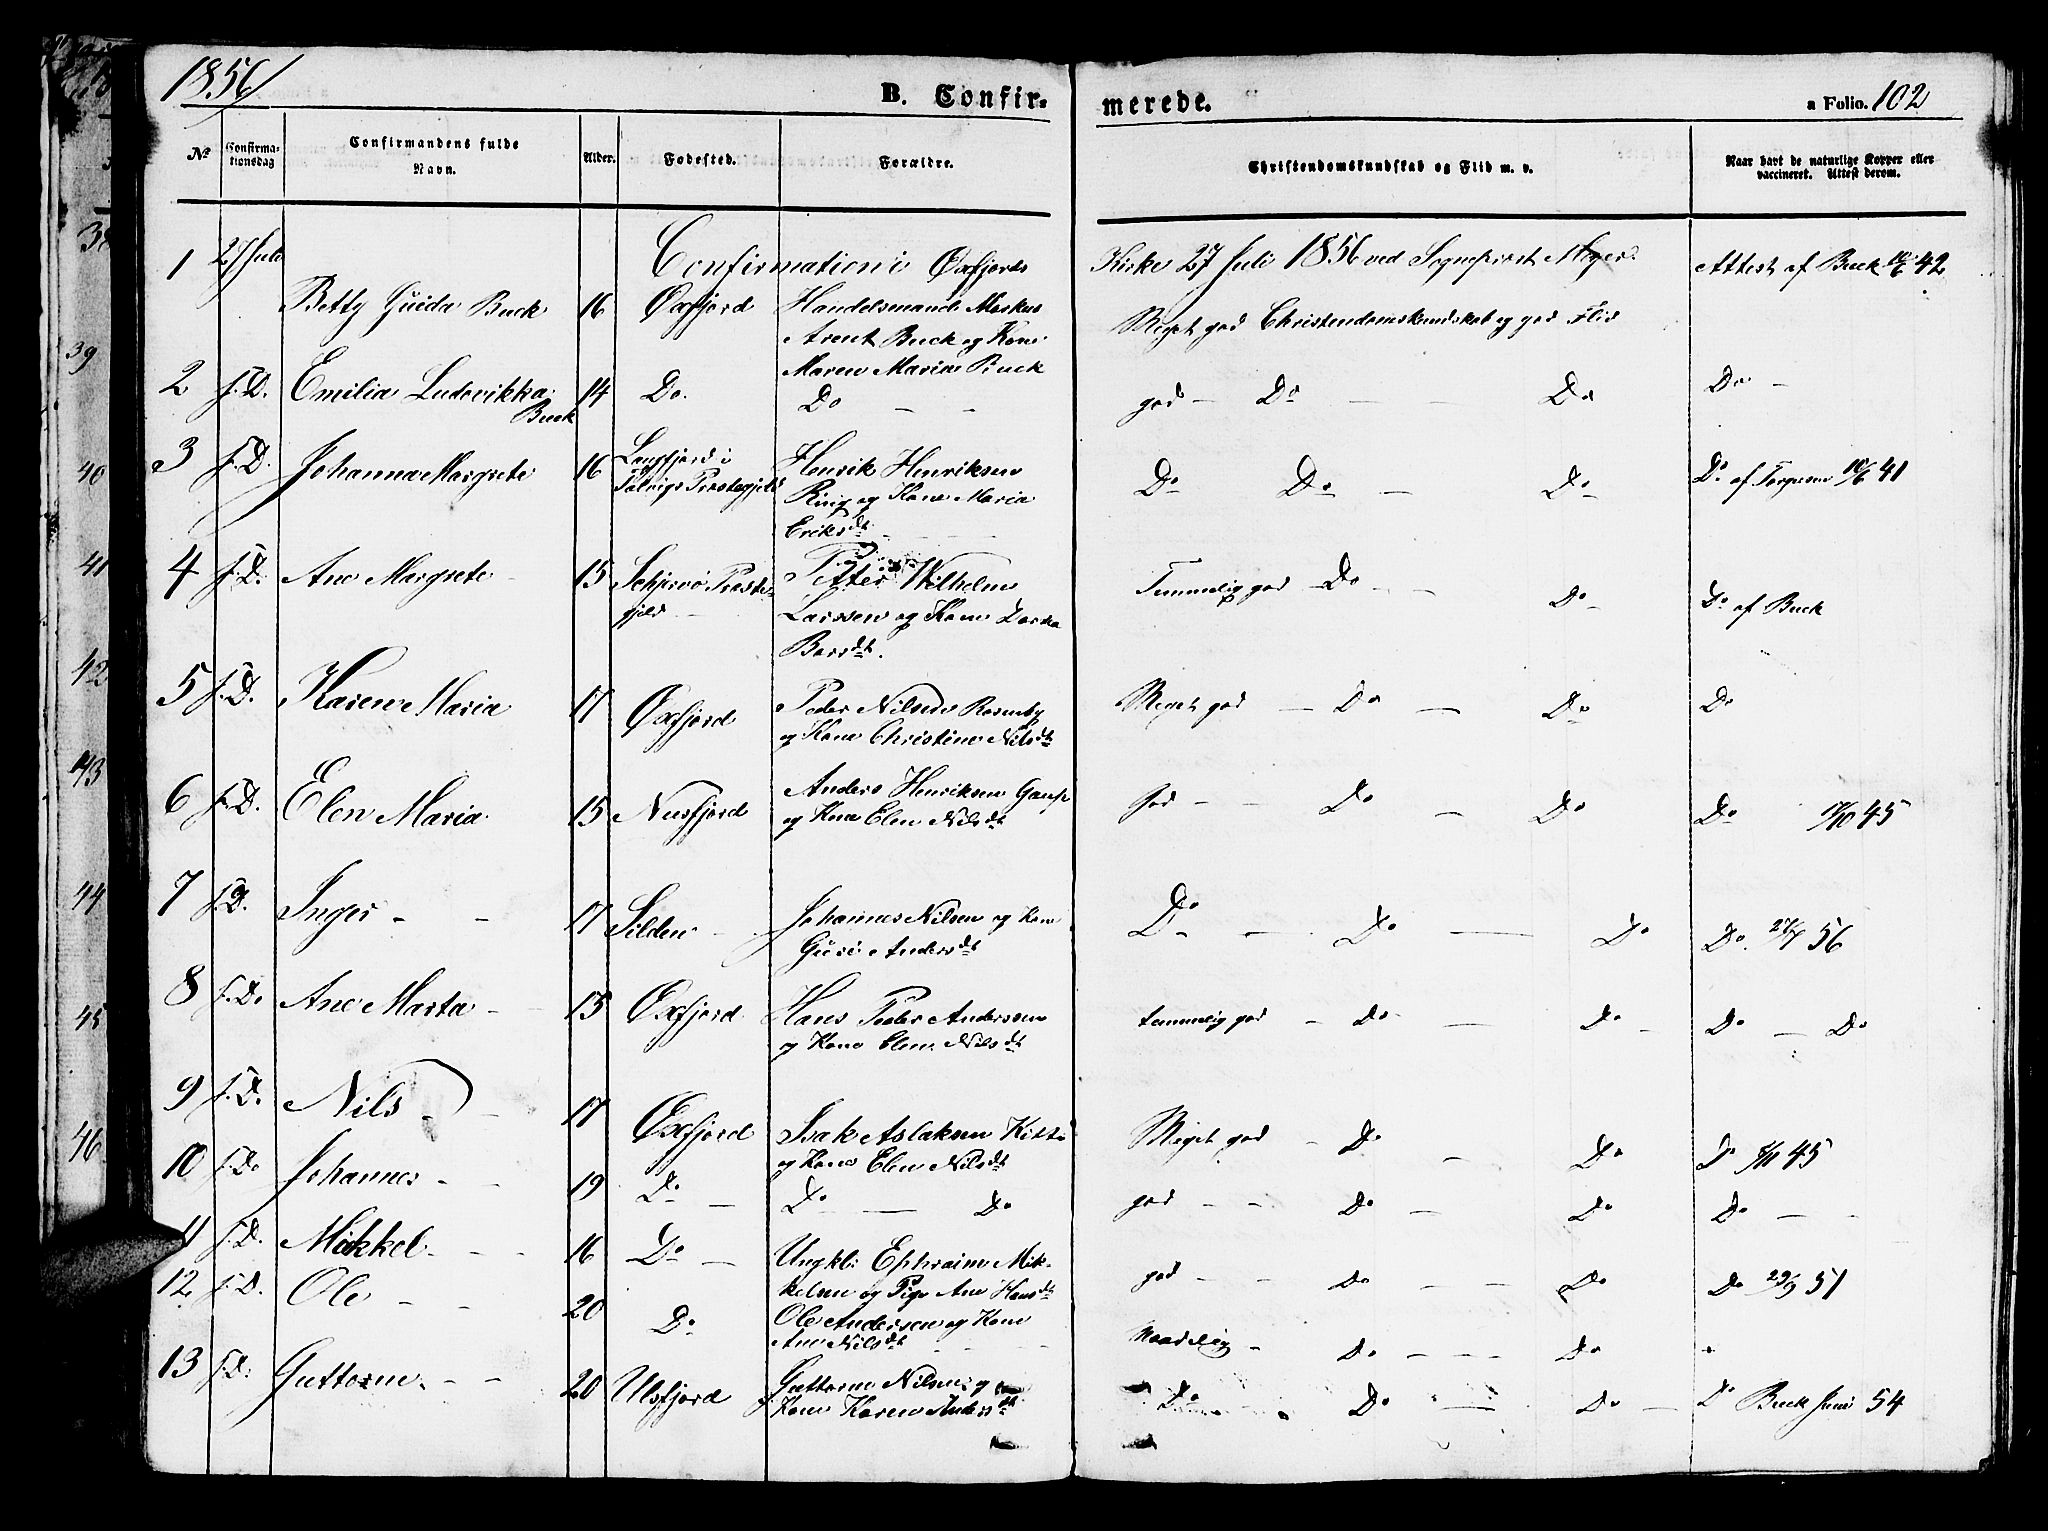 1856
B. Confir-
merede.
a Folio. 102
No
Confirma-
tionsdag
Confirmandens fulde
Navn.
Alder.
Fødested.
Forældre.
Christendomskundskab og Flid m. v.
Naar havt de naturlige Kopper eller
vaccineret. Attest derom.
1 27 Juli
Confirmation i Øxfjords
Kirke 27 Juli 1856 ved Sognepræst
Attest af Buck 42
Betty Guida Buck 16 Øxfjord Handelsmand
Arent Buck og Kone
Maren Maria Buck
Meget god Christendomskundskab og god Flid
2 s. D. Emilia Ludovikka
Buck
14 Do. Do - -
god - Do - - Do
Do -
3 s. D. Johanna Margrete 16 Langfjord i
Talvigs Præstegjeld
Henrik Henriksen
Ring og Kone Maria
Eriksdt.
Do Do - Do
Do af 10/6 41
4 s. D. Ane Margrete - 15 Schjervø Præste-
gjeld -
Petter Wilhelm
Larssen og Kone
dt.
Temmelig god - Do - - Do -
Do af Buck
5 s. D. Karen Maria 17 Øxfjord Peder Nilsen
og Kone Christine Nilsdt
Meget god - Do - Do
Do
6 s. D. Elen Maria 15 Nusfjord Anders Henriksen Gaup
og Kone Elen Nilsdt
god - - Do - Do
Do 45
7 s. D. Inger - - 17 Silden - Johannes Nilsen og Kone
Andersdt
Do - Do - Do
Do. 27/7 56
8 s. D. Ane Marta - 15 Øxfjord Hans Peder Andersen
og Kone Elen Nilsdt
temmelig god - Do - Do -
Do - Do
9 s. D. Nils - - 17 Øxfjord Isak Aslaksen Kitti
og Kone Elen Nilsdt
Meget god - Do - Do
Do 45
10 s. Do Johannes - - 19 Do - Do - Do
god - - Do - Do
Do - -
11 s. D. Mikkel - - - 16 Do - Ungkl: Ephraim Mik-
kelsen og Pige Ane Hansdt
god - - Do - Do
Do 29/9 51
12 s. D. Ole - - 20 Do Ole Andersen og Kone
Ane Nilsdt - - -
Maadelig - Do - - - Do
13 s. D. Guttorm - - 20 Ulsfjord Guttorm Nilsen og
Kone Karen Andersdt
Do - Do - Do -
Do Buck Juni 54
38
39
40
41
42
43
44
45
46